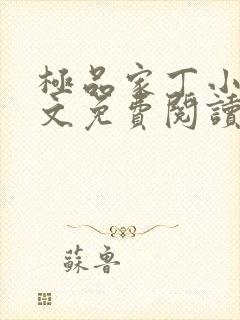 極品家丁小
文免費閱讀
蘇魯